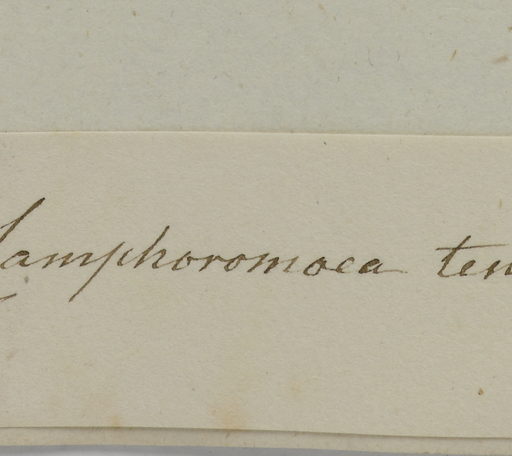 Camphoromoea ten